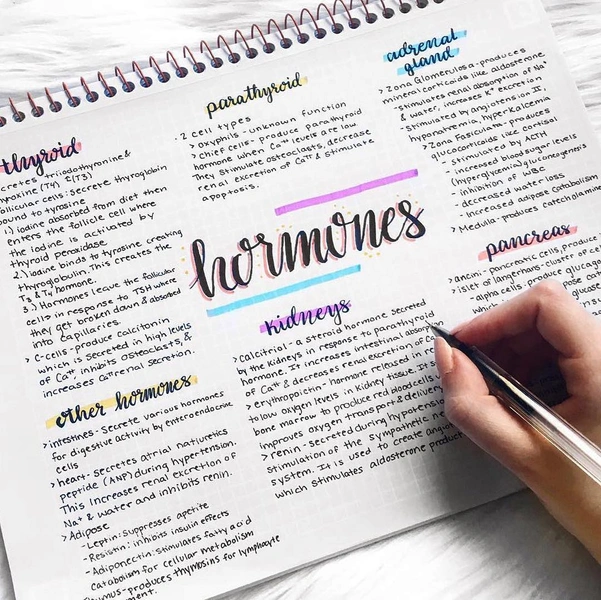 thyroid
cretes triiodothyronine &
yroxine (T4) & (T3)
ollicular cells: Secrete thyroglobin
ound to tyrosine
1.) iodine absorbed from diet then
enters the follicle cell where
the iodine is activated by
thyroid peroxidase
2.) iodine binds to tyrosine creating
thyroglobulin. This creates the
T3 & T4 hormone.
3.) Hormones leave the follicular
cells in response to TSH where
they get broken down & absorbed
into capillaries.
> C-cells - produce calcitonin
which is secreted in high levels
of Ca++, inhibits osteoclasts, &
increases Ca++ renal secretion.
other hormones
> intestines - Secrete various hormones
for digestive activity by enteroendocrine
cells
> heart - Secretes atrial natiuretics
peptide (ANP) during hypertension.
This increases renal excretion of
Na+ & water and inhibits renin.
> Adipose
- Leptin: Suppresses apetite
- Resistin: inhibits insulin effects
- Adiponectin: stimulates fatty acid
catabolism for cellular metabolism
ymus - produces thymosins for lymphocyte
ment.
parathyroid
- 2 cell types
> oxyphils - unknown function
> chief cells - produce parathyroid
hormone when Ca++ levels are low.
They stimulate osteoclasts, decrease
renal excretion of Ca++ & stimulate
apoptosis.
hormones
kidneys
> Calcitriol - a steroid hormone Secreted
by the kidneys in response to parathyroid
hormone. It increases intestinal absorp
of Ca++ & decreases renal excretion of Ca
> erythropoietin - hormone released in r
to low oxygen levels in kidney tissue. It s
bone marrow to produce red blood cells
improves oxygen transport & delivery
> renin - Secreted during hypotensio
stimulation of the sympathetic ne
system. It is used to create angio
which stimulates aldosterone product
adrenal
gland
> Zona Glomerulosa - produces
mineral corticoids like aldosterone
- stimulates renal absorption of Na+
& water, increases K+ excretion
- stimulated by angiotensin II,
hyponatremia, hyperkalcemia
> Zona Fasicular - produces
glucocorticoids like cortisol
- stimulated by ACTH
- increased blood sugar levels
(hyperglycemia) gluconeogenesis
- inhibition of WBC
- decreased water loss
- increased adipose catabolism
> Medulla - produces catecholamine
pancreas
> ancini - pancreatic cells, produce
> islet of langerhans - cluster of ce
- alpha cells - produce glucago